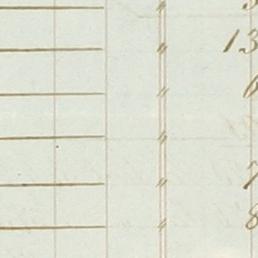 〃
〃 13
〃 6
〃
〃 7
〃 8